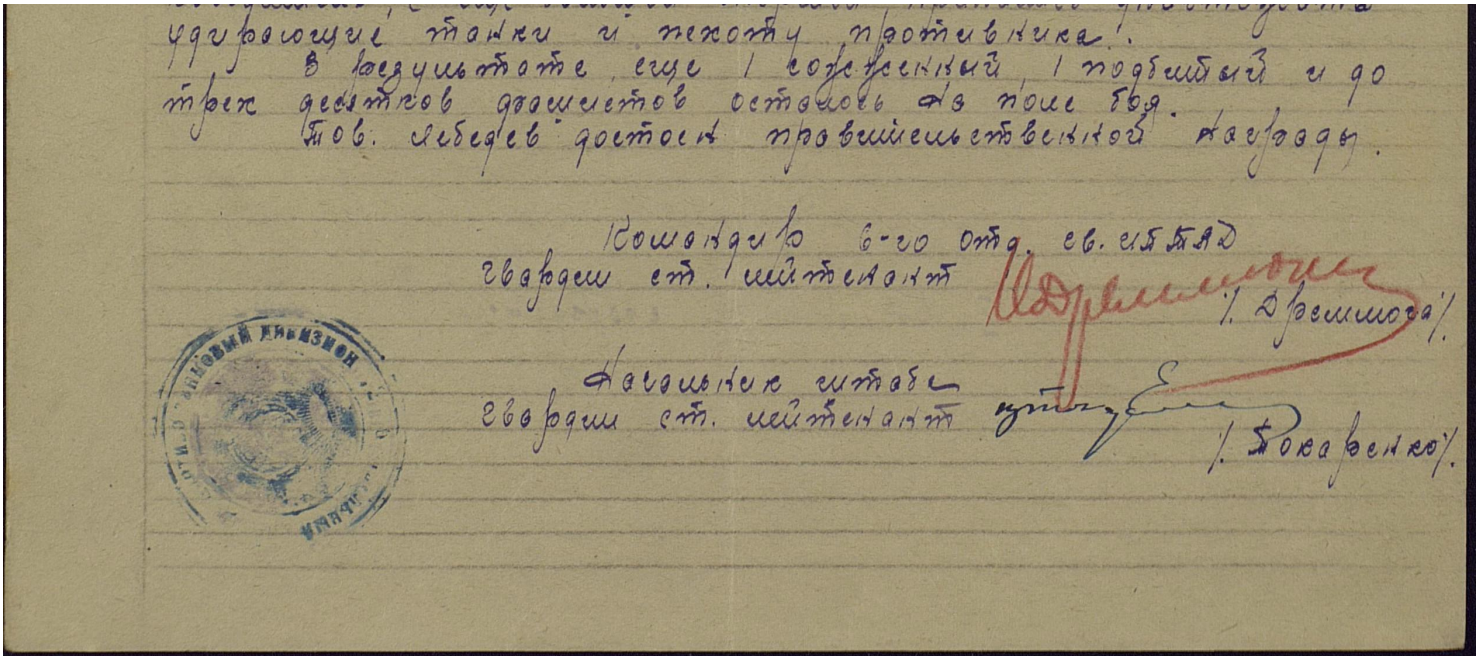 с еще
удирающие танки и пехоту противника.
В результате еще 1 сожженный, 1 подбитый и до
трех десятков фашистов осталось на поле боя.
Тов. Лебедев достоен правительственной награды.
Командир 6-го отд. св. ИПТАД
гвардии ст. лейтенант
/. Дремлюга/.
Начальник штаба
гвардии ст. лейтенант
/. Токаренко/.
ДИВИЗИОН